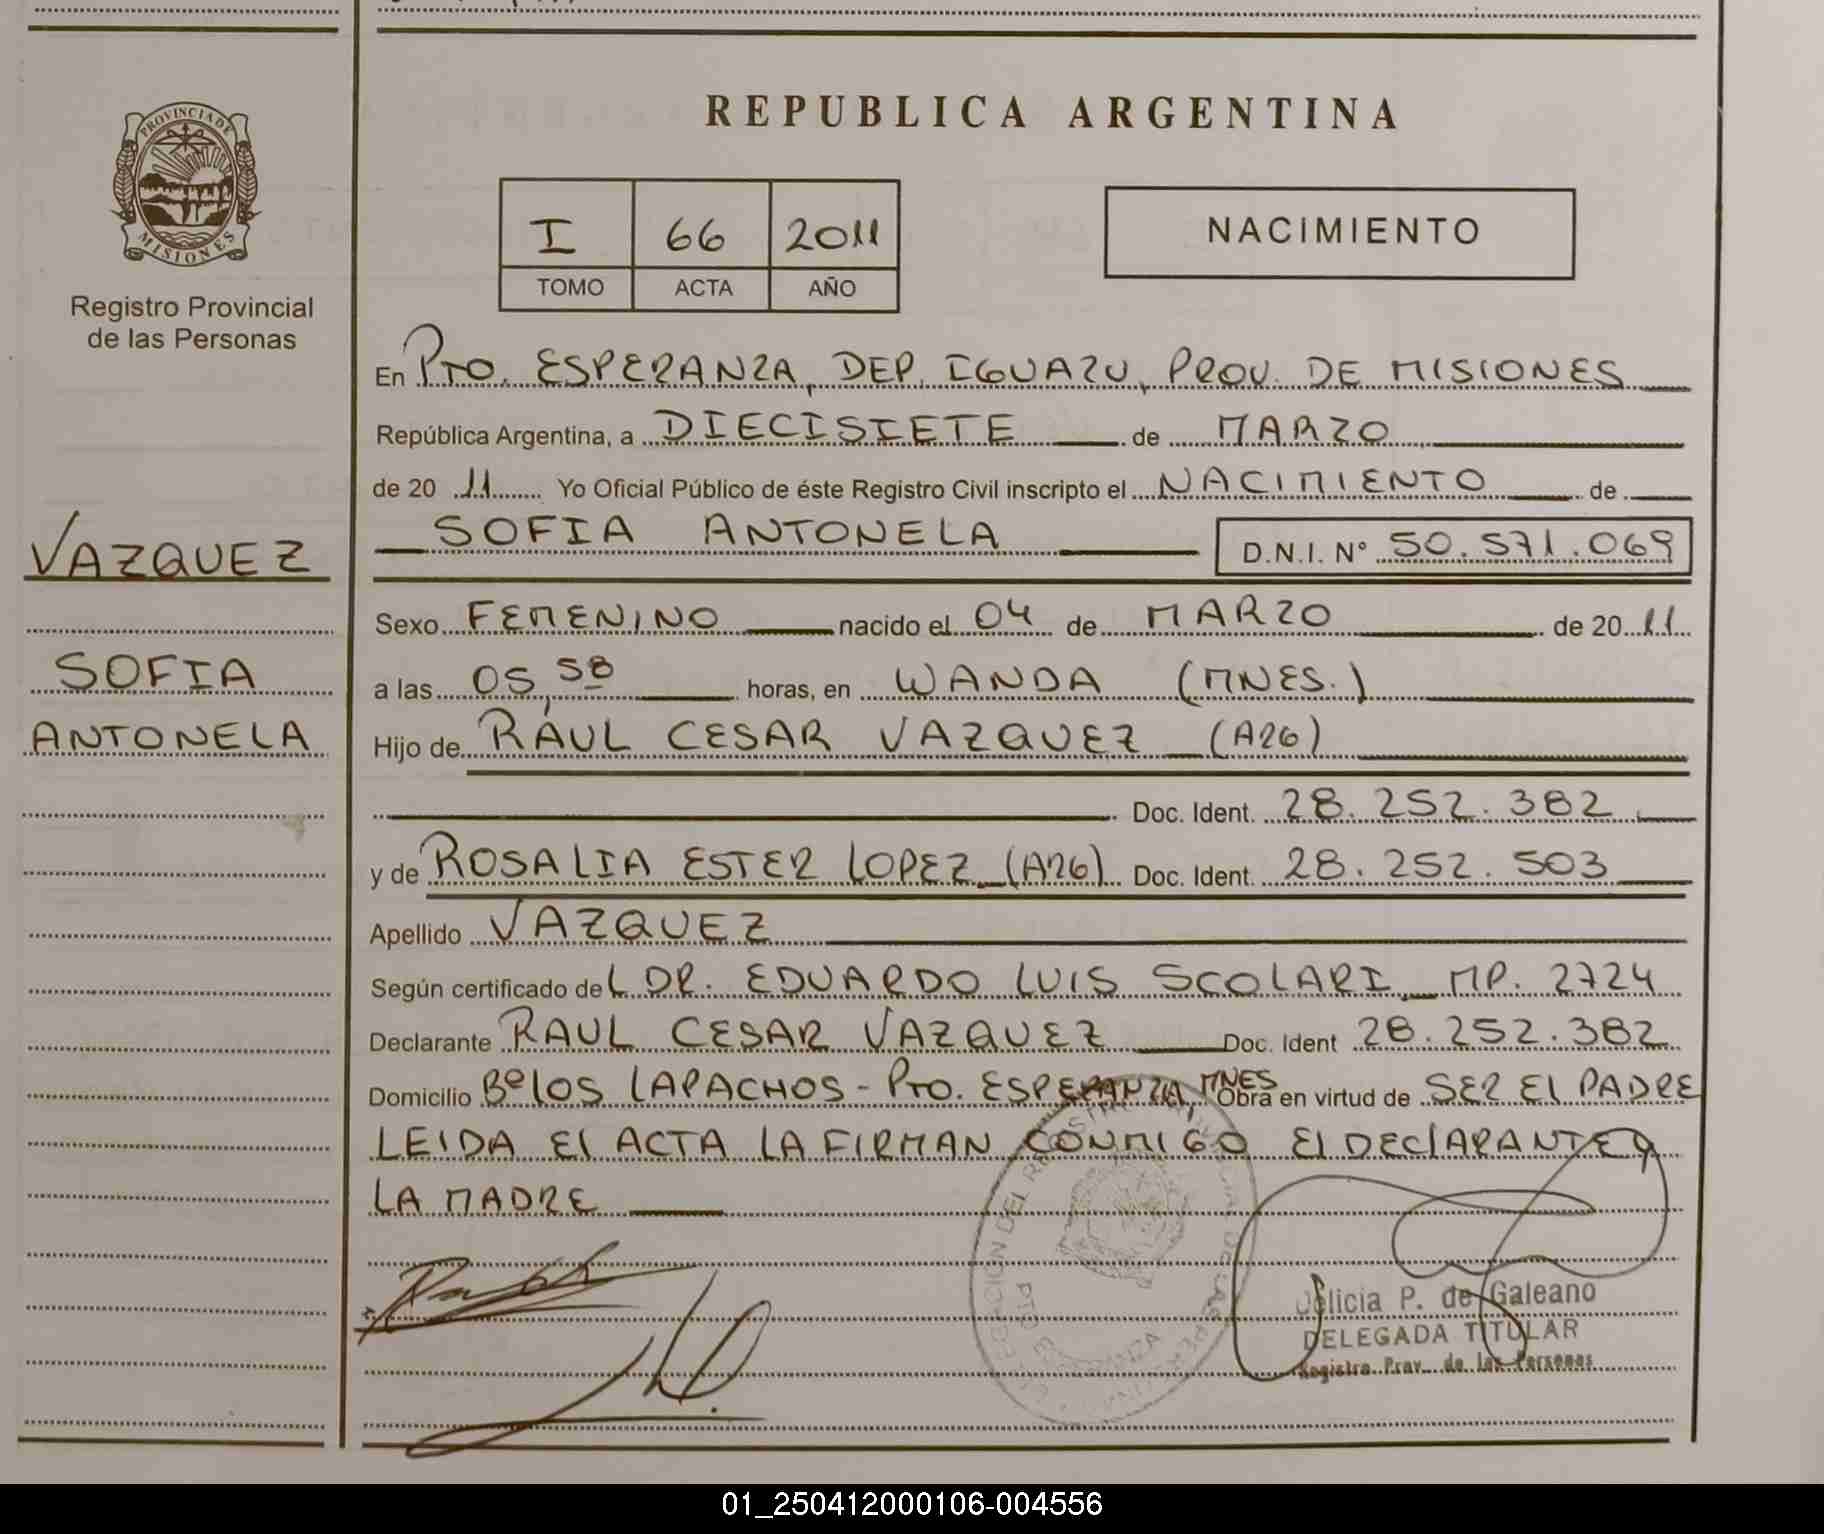 REPUBLICA ARGENTINA
PROVINCIA DE
MISIONES
Registro Provincial
de las Personas
I 66 2011
TOMO ACTA AÑO
NACIMIENTO
En PTO. ESPERANZA, DEP. IGUAZU, PROV. DE MISIONES
República Argentina, a DIECISIETE de MARZO
de 20 11 Yo Oficial Público de éste Registro Civil inscripto el NACIMIENTO de
SOFIA ANTONELA D.N.I. N° 50.571.069
VAZQUEZ
SOFIA
ANTONELA
Sexo FEMENINO nacido el 04 de MARZO de 20 11
a las 05,58 horas, en WANDA (MNES.)
Hijo de RAUL CESAR VAZQUEZ (A26)
Doc. Ident. 28.252.382
y de ROSALIA ESTER LOPEZ (A26) Doc. Ident. 28.252.503
Apellido VAZQUEZ
Según certificado del DR. EDUARDO LUIS SCOLARI MP. 2724
Declarante RAUL CESAR VAZQUEZ Doc. Ident 28.252.382
Domicilio Bº LOS LAPACHOS - PTO. ESPERANZA, MNES Obra en virtud de SER El PADRE
LEIDA El ACTA LA FIRMAN CONMIGO El DEClARANTE Y
LA MADRE
P. de Galeano
DELEGADA TITULAR
Registro Prov. de las Personas
01_250412000106-004556